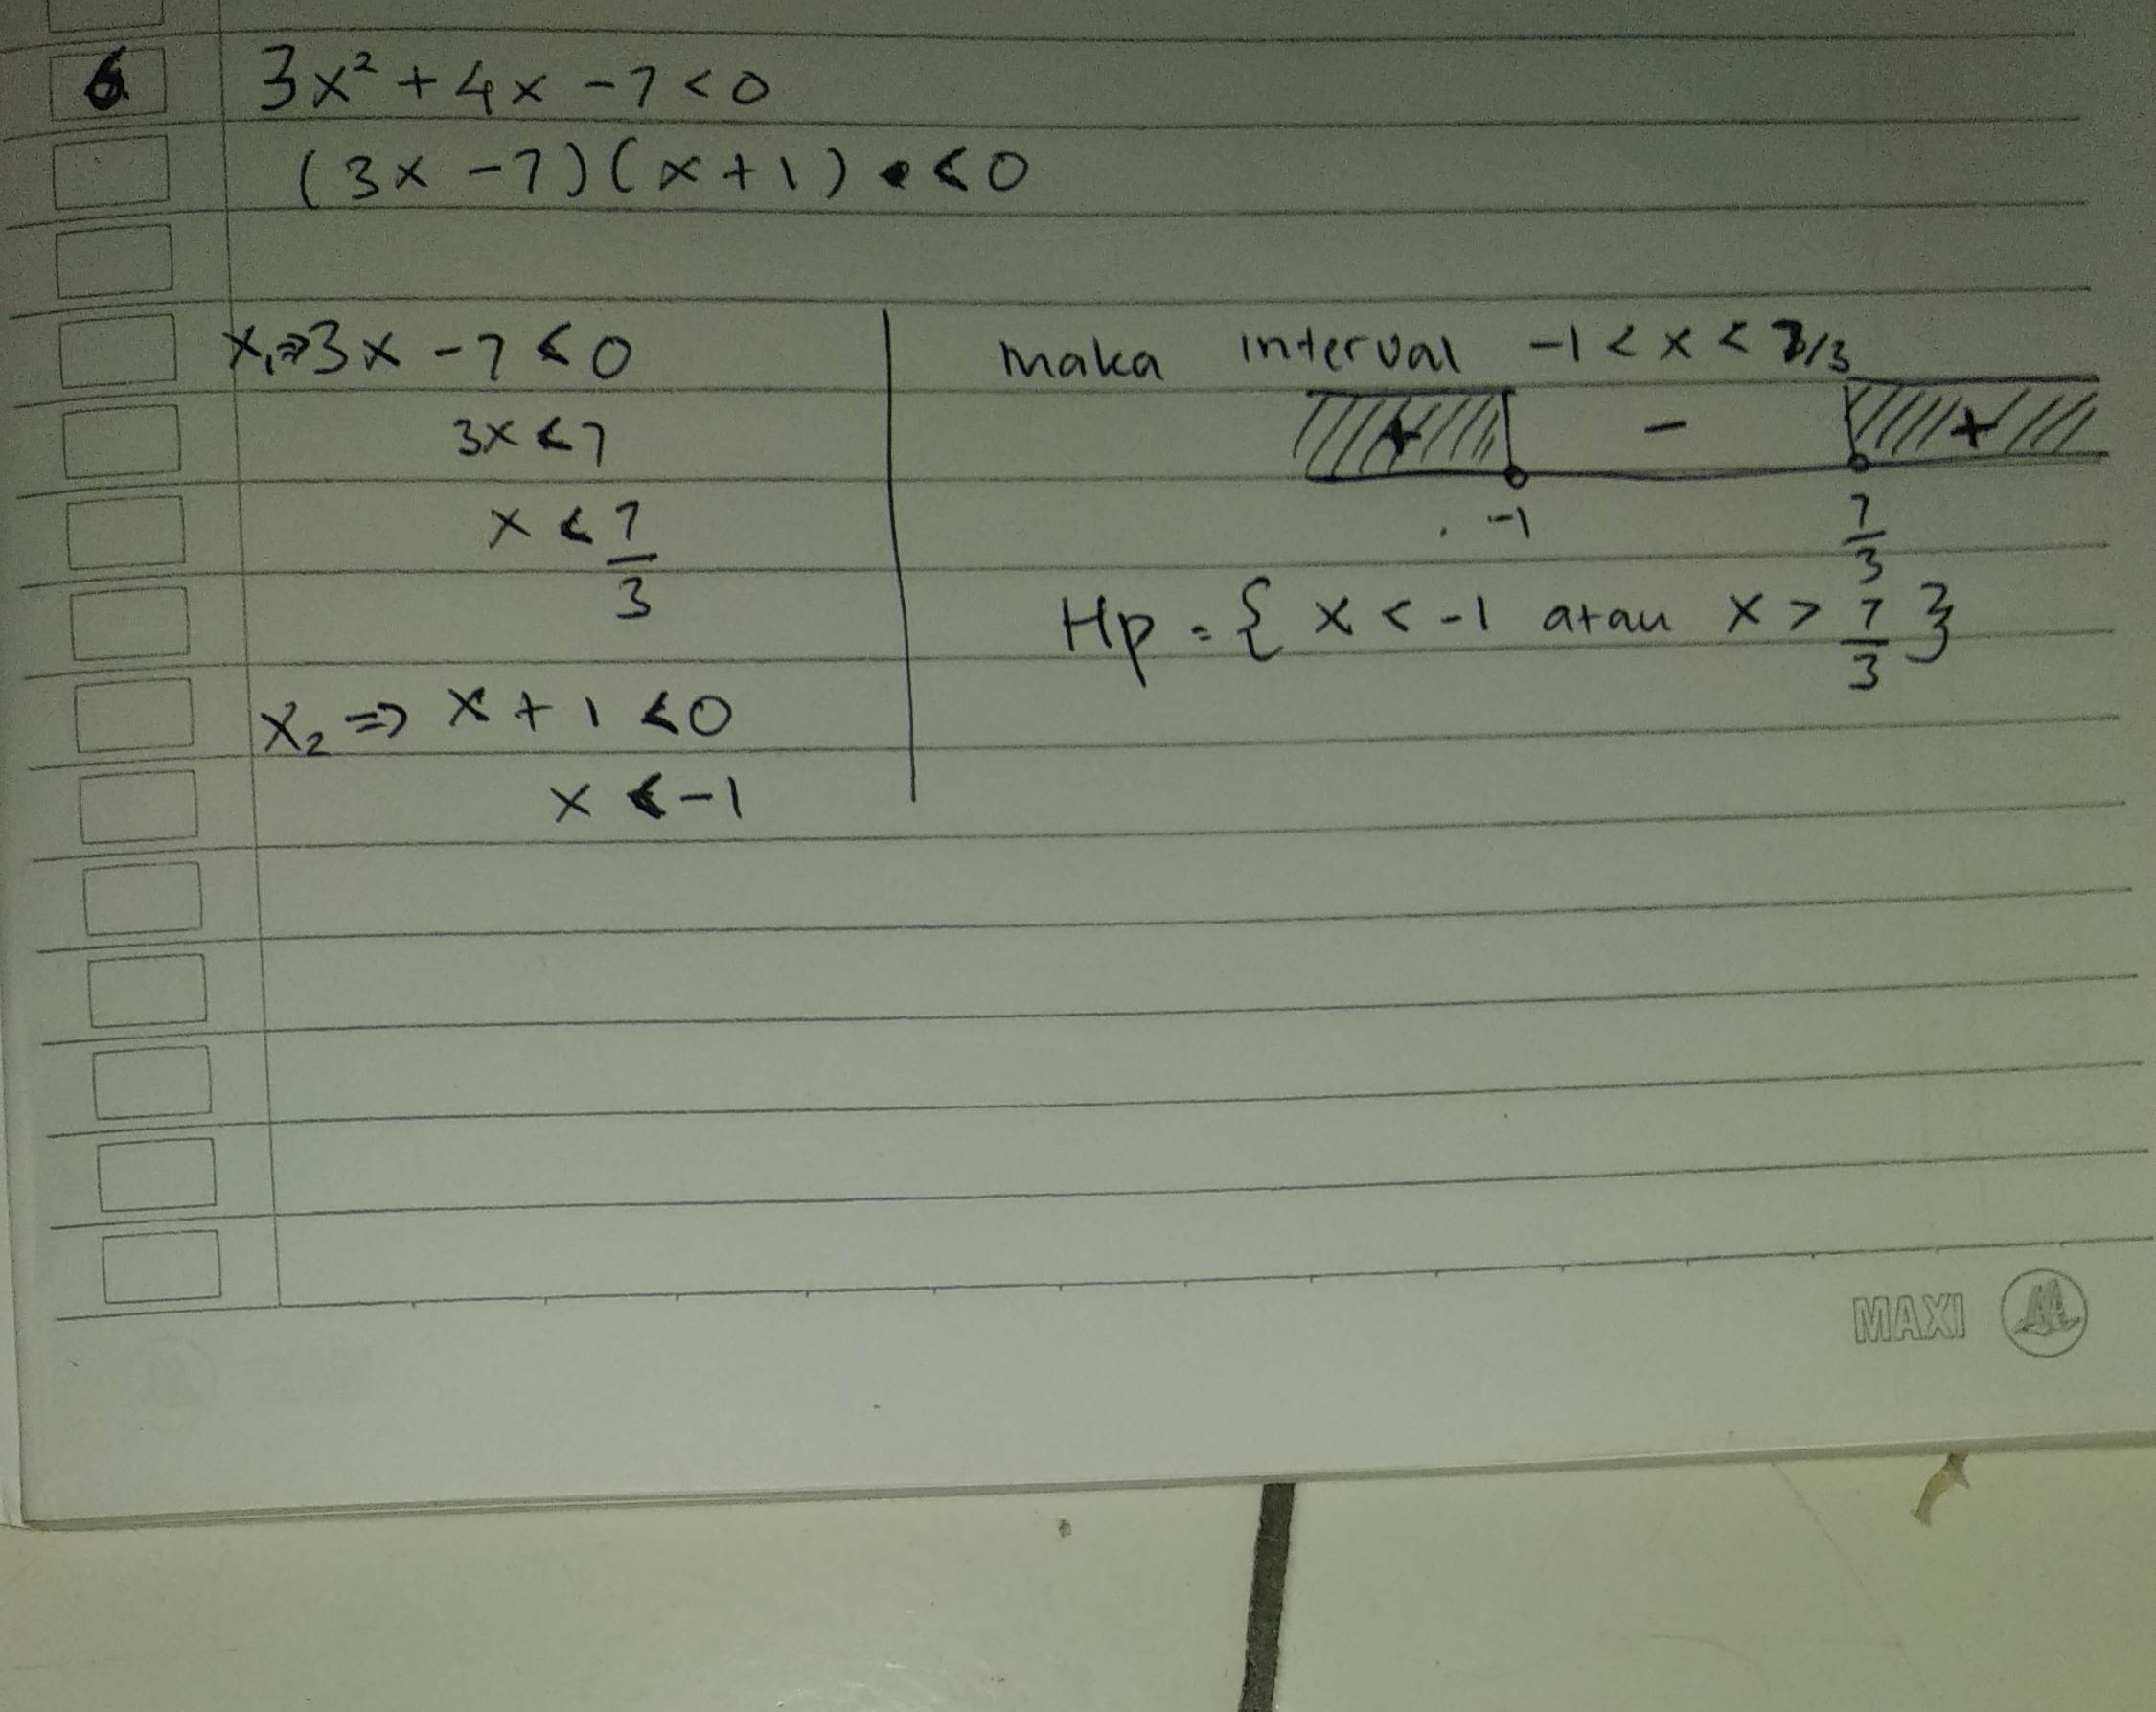 6 3x² + 4x - 7 < 0
(3x - 7)(x + 1) < 0
x₁ ⇒ 3x - 7 < 0
3x < 7
x < 7/3
x₂ ⇒ x + 1 < 0
x < -1
maka interval -1 < x < 7/3
+ - +
-1 7/3
Hp = { x < -1 atau x > 7/3 }
MAXI